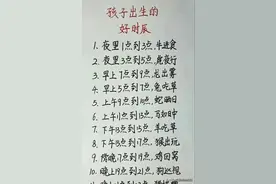 孩子出生的
好时辰
1. 夜里1点到3点,牛进食
2. 夜里3点到5点,虎夜行
3. 早上7点到9点,龙出雾
4. 早上5点到7点,兔吃草
5. 上午9点到11点,蛇晒日
6. 上午11点到13点,马如日中
7. 下午13点到15点,羊吃草
8. 下午15点到17点,猴出玩
9. 傍晚17点到19点,鸡回窝
10. 晚上19点到21点,狗巡视